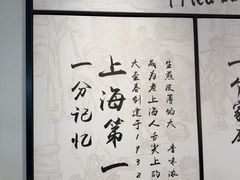 一分记忆
上海第一
大壶春创建于1932
成为老上海人舌尖上的
生煎皮薄馅大 香味浓
一个家